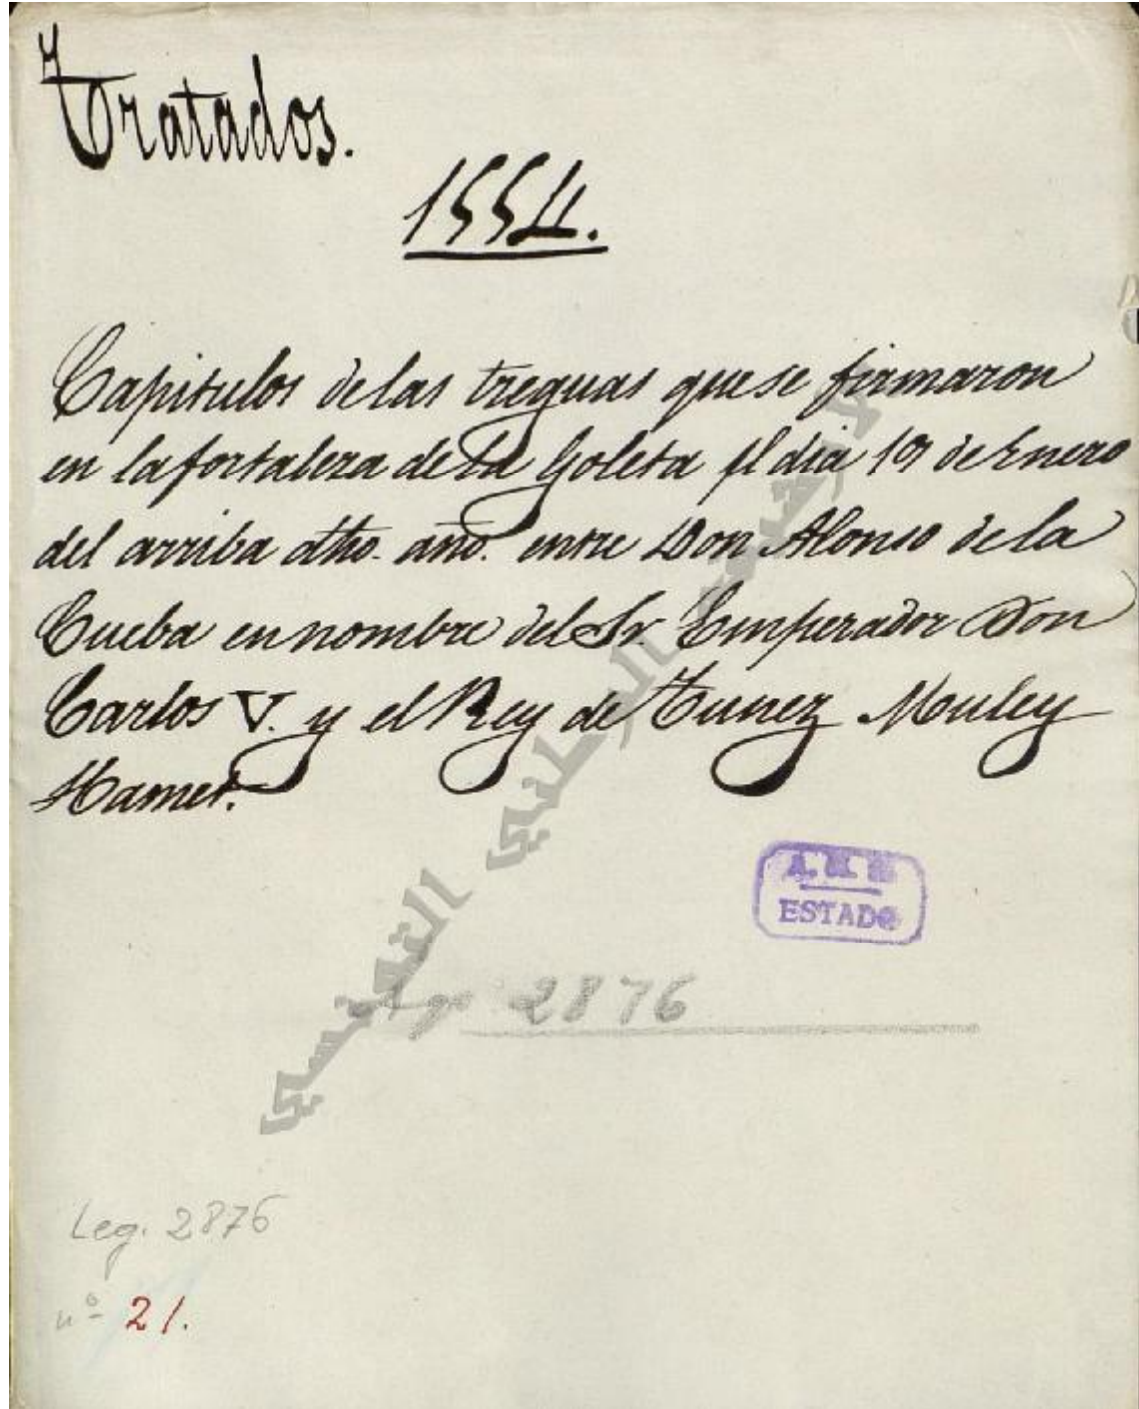 Tratados.
1554.
Capitulos de las treguas que se firmaron
en la fortaleza de la Goleta el dia 19 de Enero
del arriba dho. año. entre Don Alonso de la
Cueba en nombre del Sr. Emperador Don
Carlos V. y el Rey de Tunez Muley
Hamet.
ESTADO
2876
Leg. 2876
nº 21.